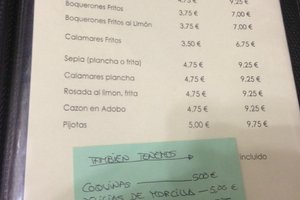 4,75 € 9,25 €
Boquerones Fritos 3,75 € 7,00 €
Boquerones Fritos al Limón 3,75 € 7,00 €
Calamares Fritos 3,50 € 6,75 €
Sepia (plancha o frita) 4,75 € 9,25 €
Calamares plancha 4,75 € 9,25 €
Rosada al limon, frita 4,75 € 9,25 €
Cazon en Adobo 4,75 € 9,25 €
Pijotas 5,00 € 9,75 €
incluido
TAMBIEN TENEMOS
COQUINAS 5,00 €
DE MORCILLA 5,00 €